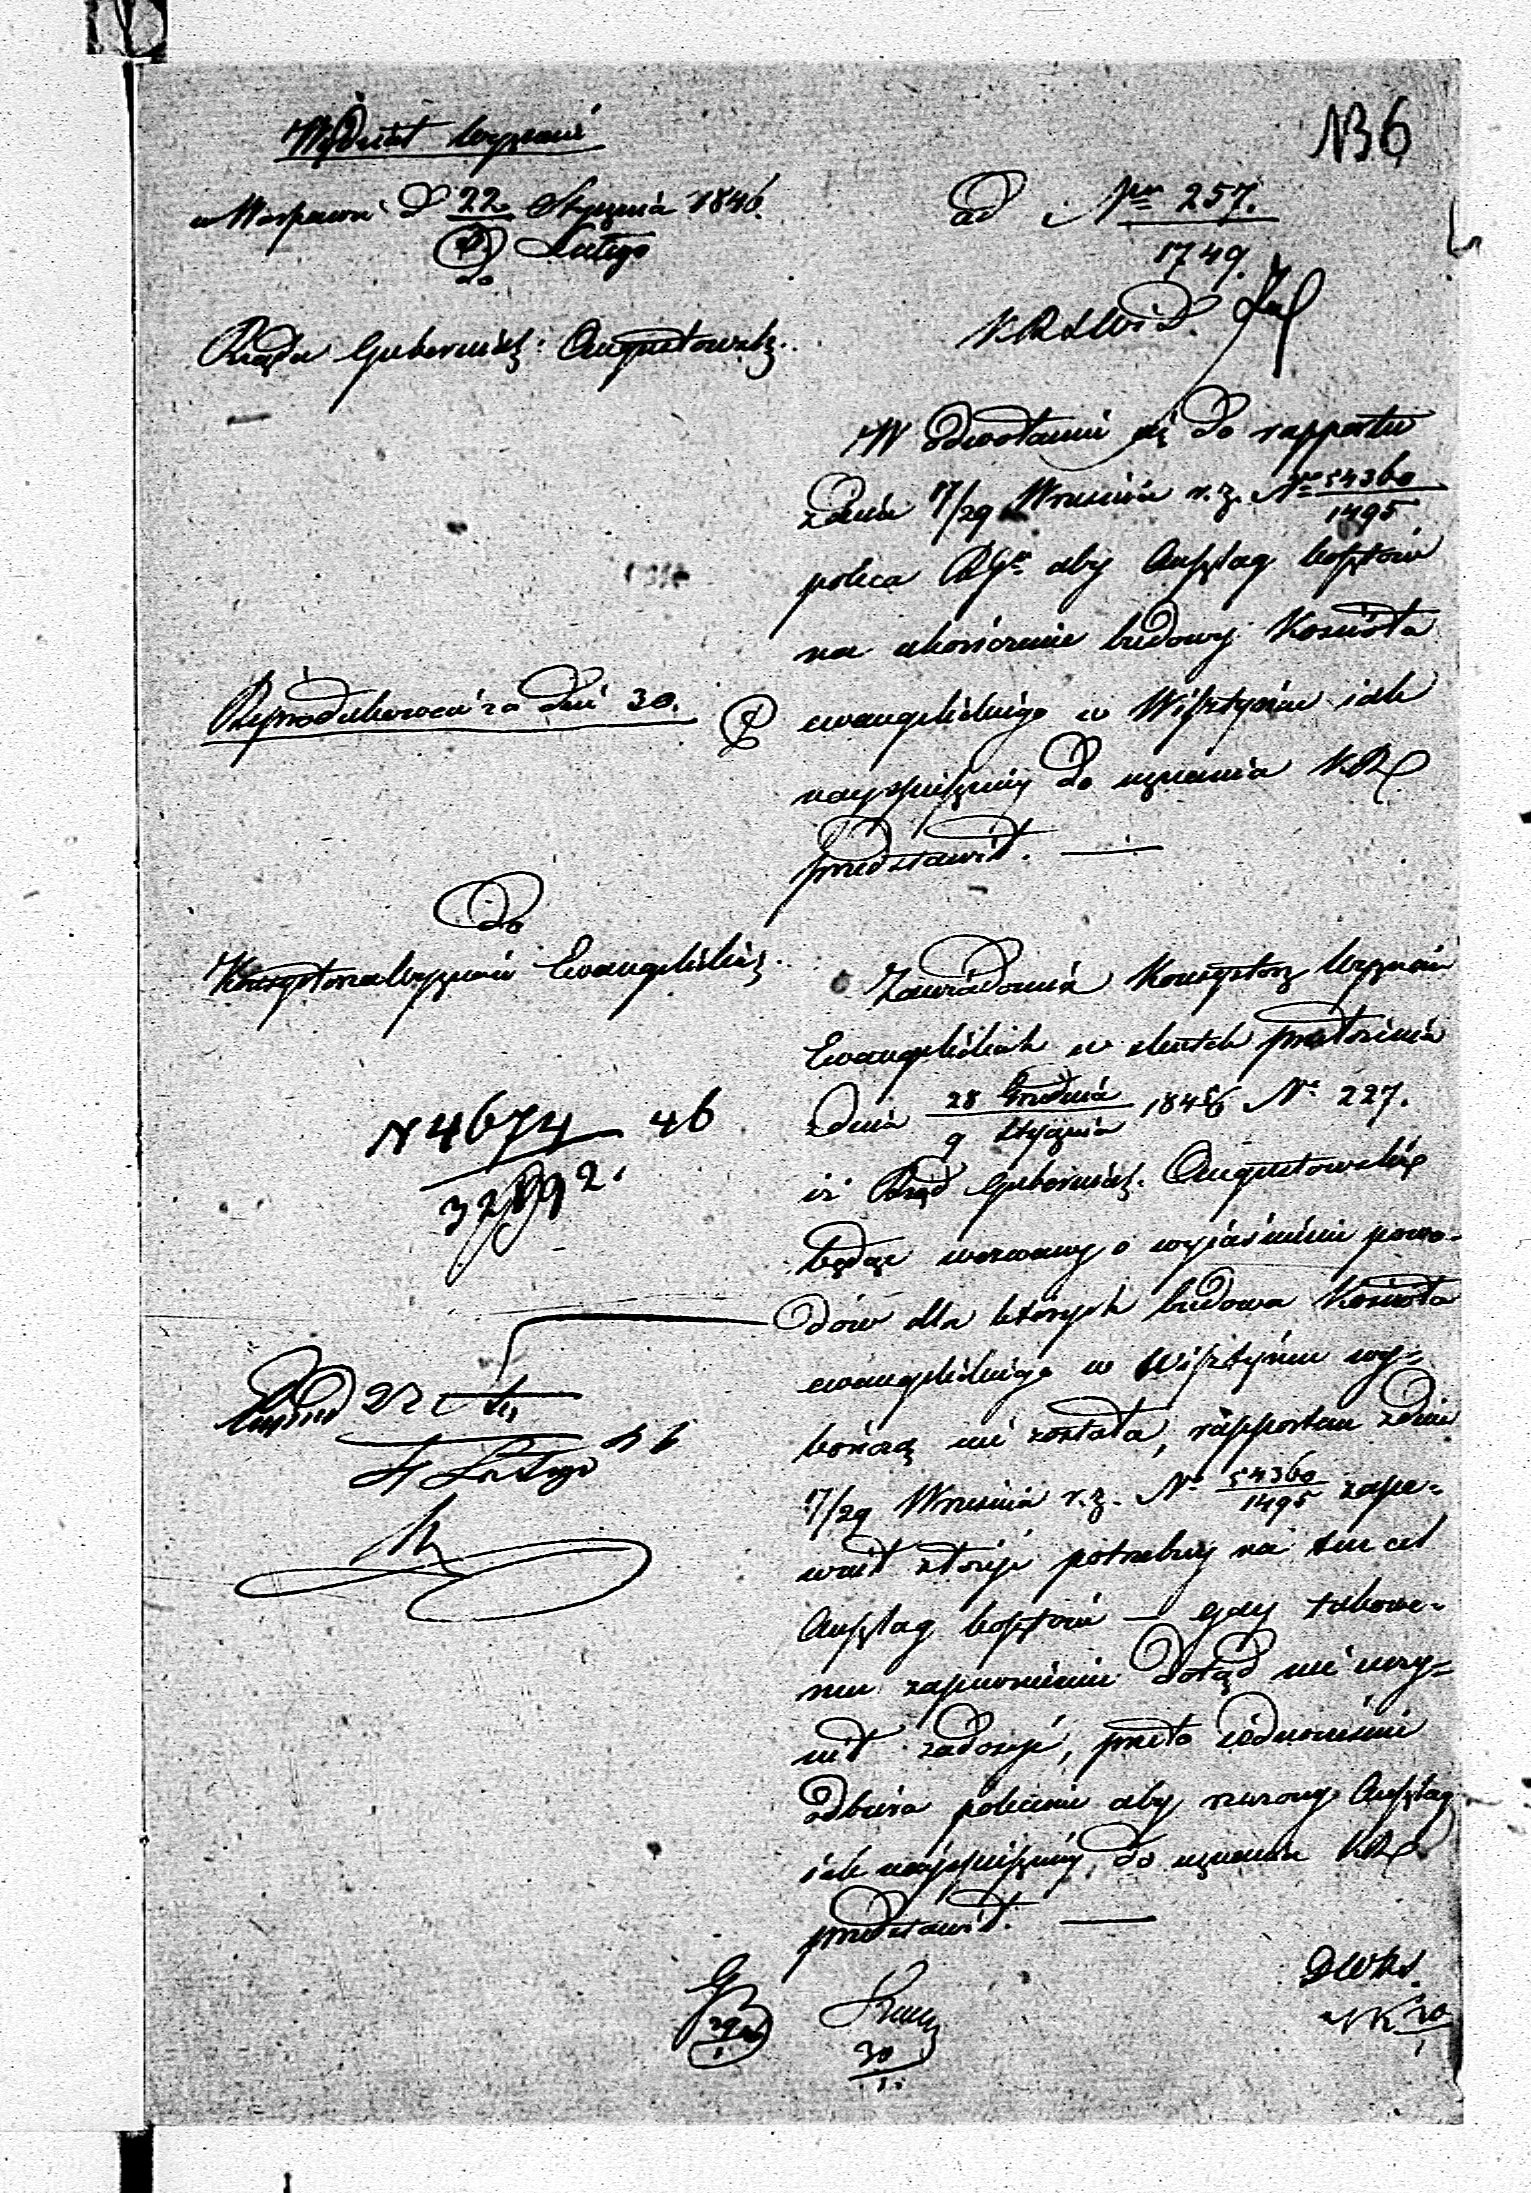 Wydział Wyznań
N 36
w Warszawie d 22 Stycznia 1846.
Lutego
do
Rządu Gubernial: Augustowsk:
ad Nrum 257.
1749.
K R S W i D.
W odwołaniu się do rapportu
z dnia 17/29 Września r. z. Nro 54360
1495
poleca RGu aby Anszlag kosztów
na ukończenie budowy Kościoła
ewangelickiego w Wisztyńcu iak
nayspieszniey do uznania KR
przedstawił. —
Reprodukować za dni 30.
do
Konsystorza Wyznań Ewangelickich.
Zawiadamia Konsystorz Wyznań
Ewangelickich w skutek przełożenia
z dnia 28 Grudnia
9 Stycznia 1845/6 Nr 227.
iż Rząd Gubernial. Augustowski
będąc wezwany o wyiaśnienie powo-
dów dla których budowa Kościoła
ewangelickiego w Wisztyńcu wy-
kończą nie została, rapportem z dnia
17/29 Września r. z. Nr 54360
1495 zape-
wnił złożyć potrzebny na ten cel
Anszlag kosztów — gdy takowe-
mu zapewnieniu dotąd nie uczy-
nił zadosyć, przeto iednocześnie
odbiera polecenie aby rzeczony Anszlag
iak nayspieszniey do uznania KR
przedstawił. —
N 4674 46
32892.
22
4 Lutego 46
29
1
30
1.